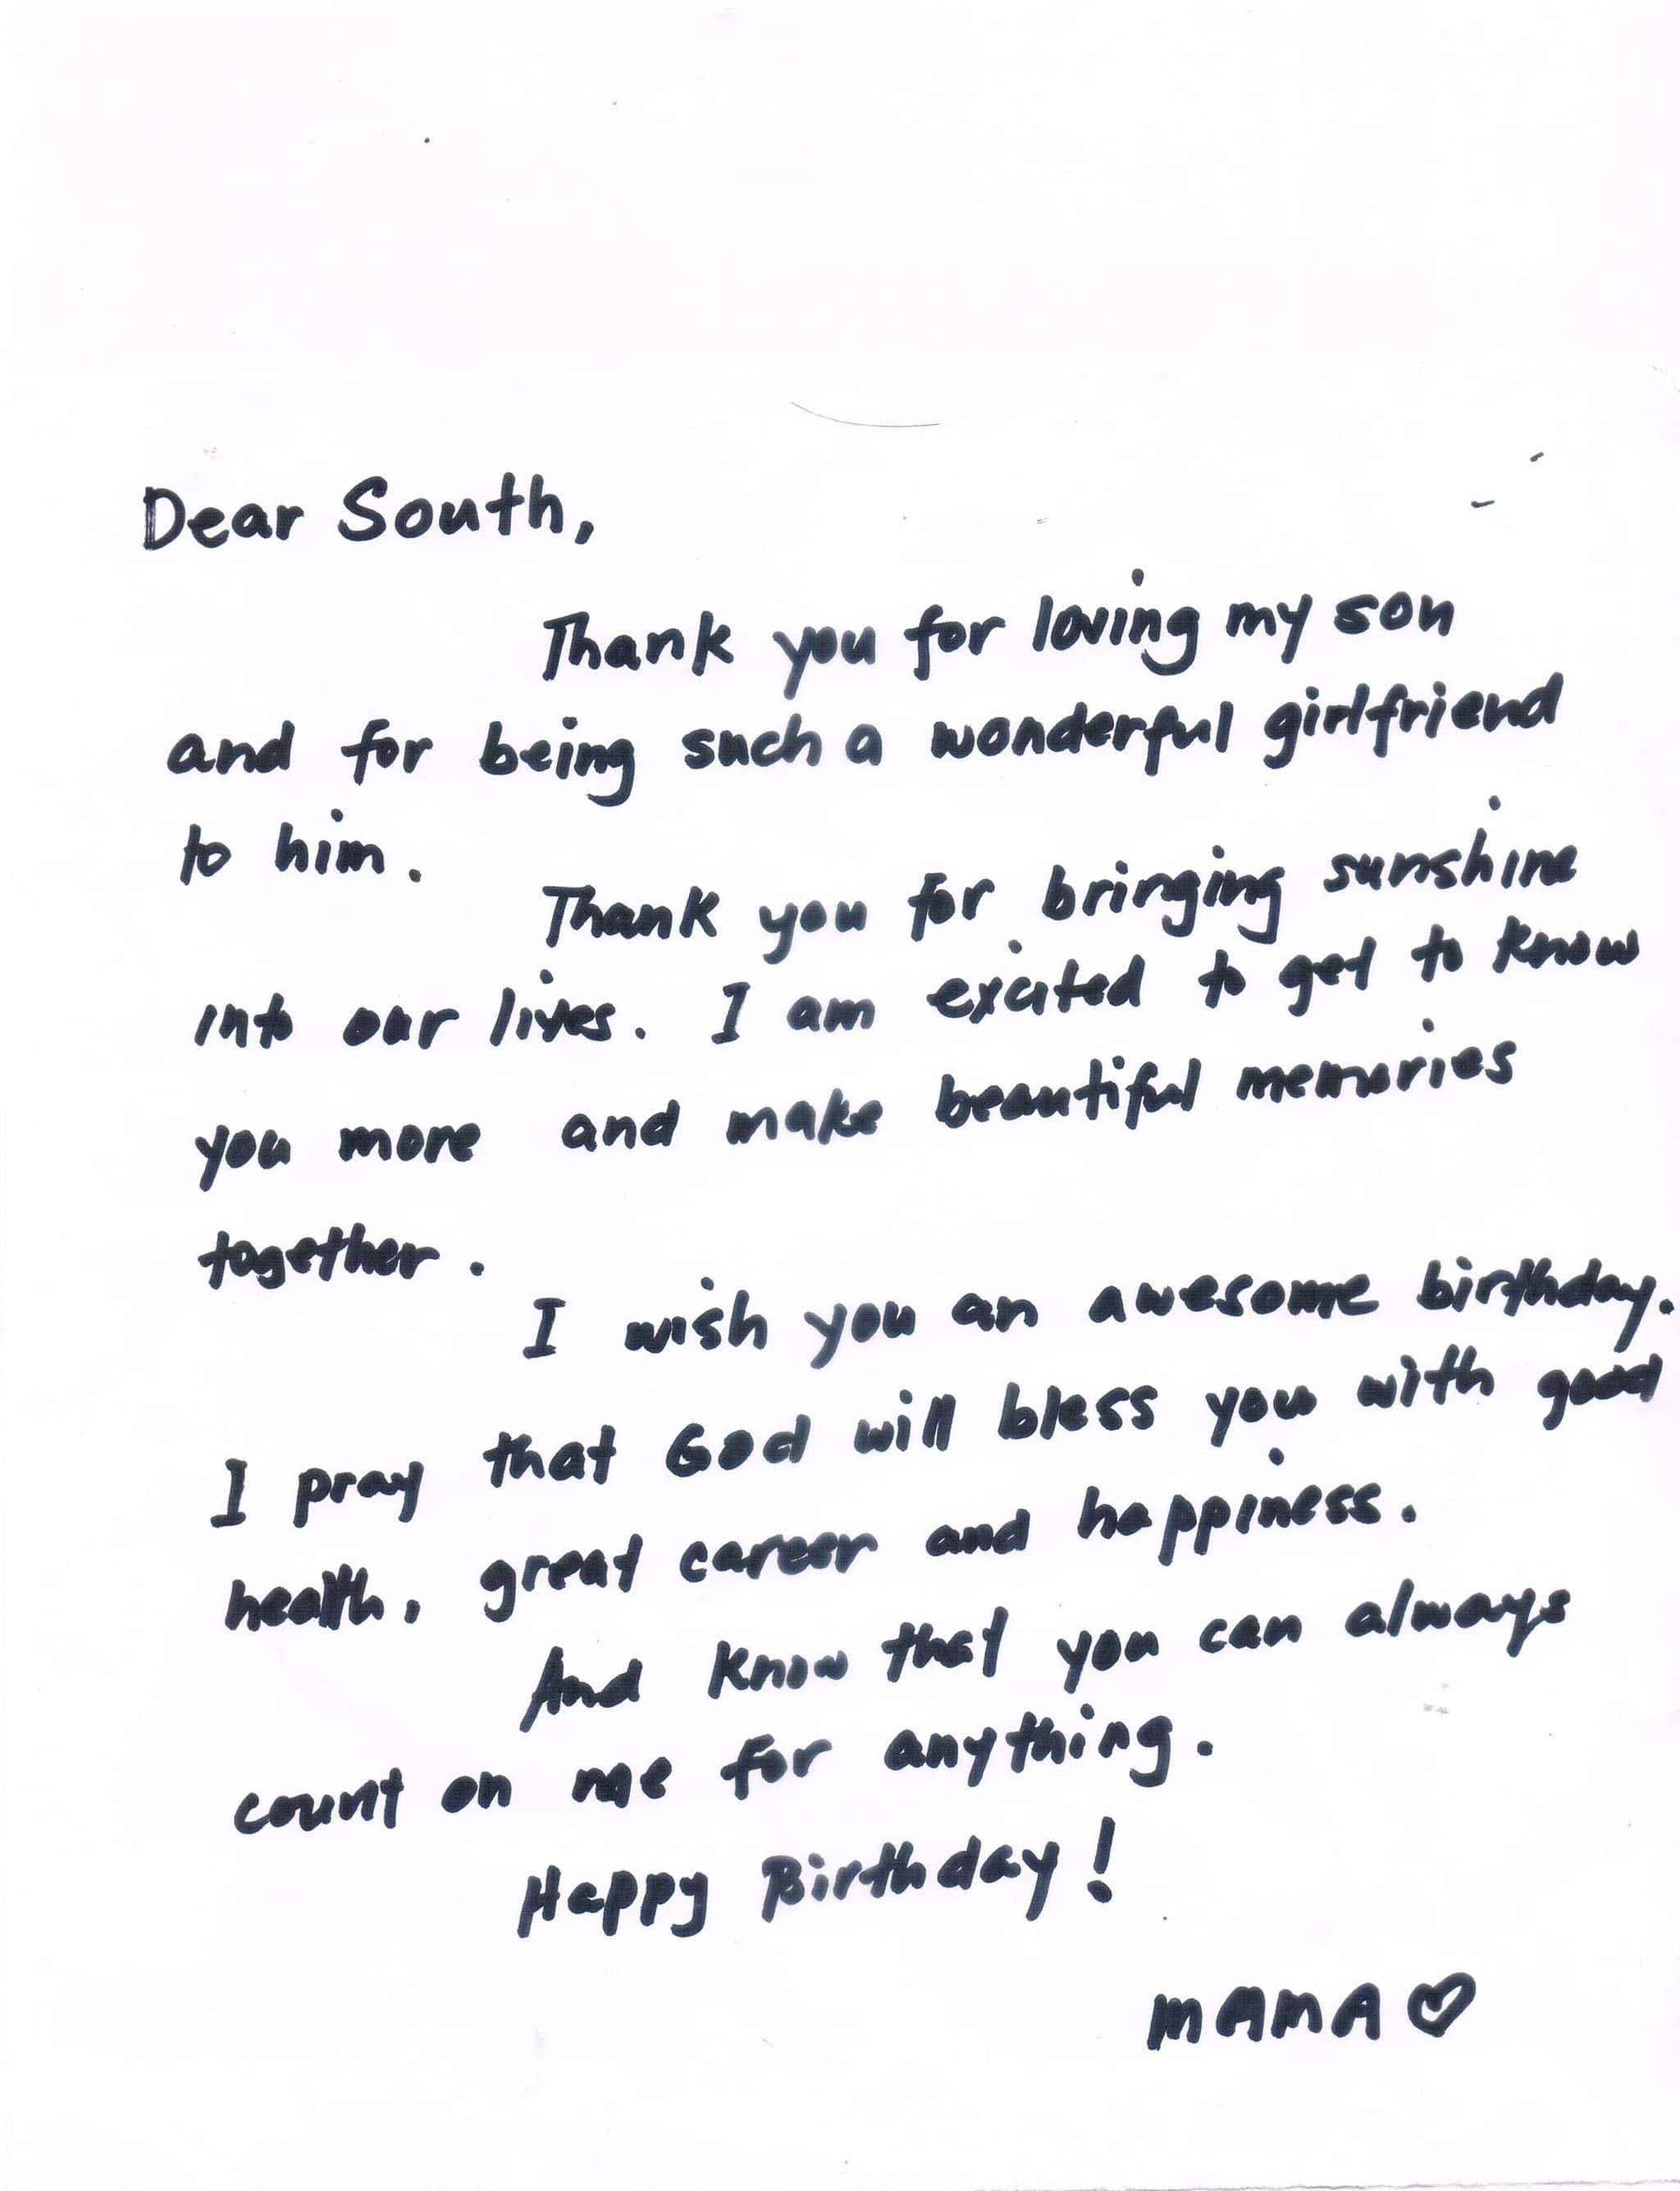 Dear South,
Thank you for loving my son
and for being such a wonderful girlfriend
to him.
Thank you for bringing sunshine
into our lives. I am excited to get to know
you more and make beautiful memories
together.
I wish you an awesome birthday.
I pray that God will bless you with good
health, great career and happiness.
And know that you can always
count on me for anything.
Happy Birthday!
MAMA ♡